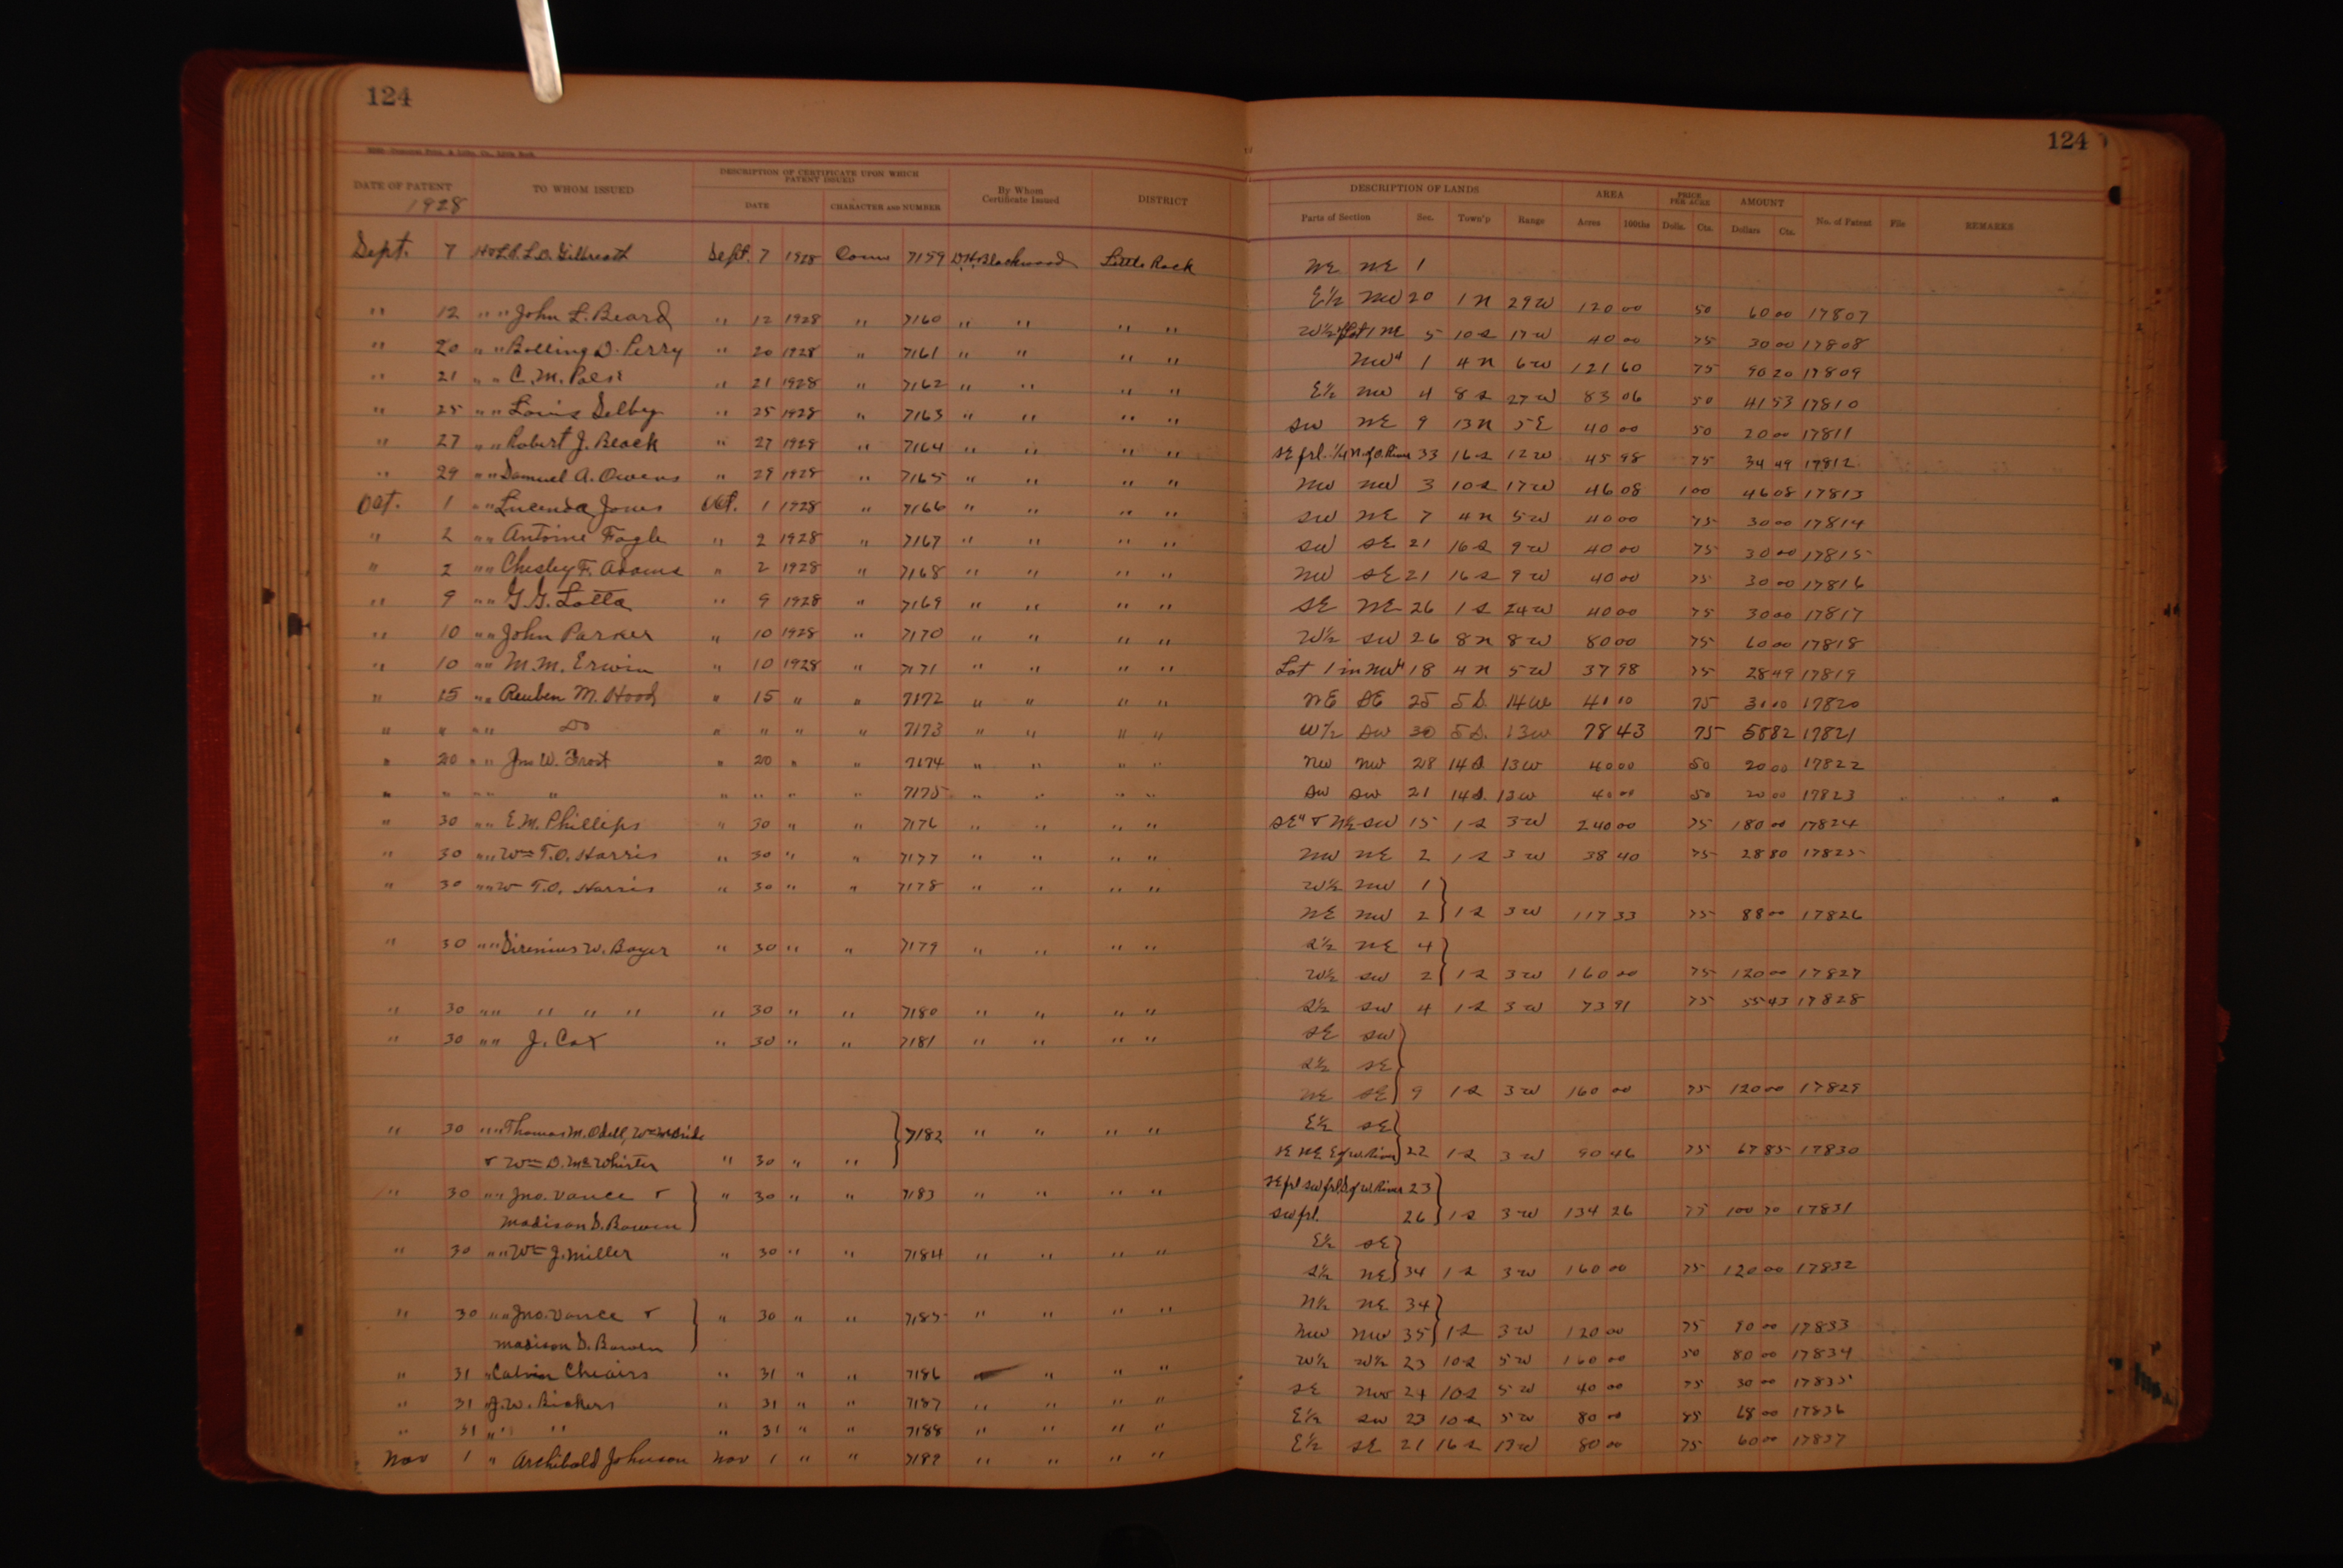 124
124
DATE OF PATENT TO WHOM ISSUED DESCRIPTION OF CERTIFICATE UPON WHICH PATENT ISSUED By Whom Certificate Issued DISTRICT DESCRIPTION OF LANDS AREA PRICE PER ACRE AMOUNT No. of Patent File REMARKS
1928 DATE CHARACTER AND NUMBER Parts of Section Sec. Town'p Range Acres 100ths Dolls. Cts. Dollars Cts.
Sept. 7 L.D. Gilbreath Sept. 7 1928 7159 D.H. Blackwood Little Rock NE NE 1
E½ NW 20 1 N 29 W 120 00 50 60 00 17807
" 12 " " John L. Beard " 12 1928 " 7160 " " " " W½ of Lot 1 NE 5 10 S 17 W 40 00 75 30 00 17808
" 20 " " Bolling D. Perry " 20 1928 " 7161 " " " " NW" 1 4 N 6 W 121 60 75 90 20 17809
" 21 " " C.M. " 21 1928 " 7162 " " " " E½ NW 4 8 S 27 W 83 06 50 41 53 17810
" 25 " " Louis Selby " 25 1928 " 7163 " " " " SW NE 9 13 N 5 E 40 00 50 20 00 17811
" 27 " " Robert J. Beock " 27 1928 " 7164 " " " " SE frl. ¼ N. of O. River 33 16 S 12 W 45 98 75 34 49 17812
" 29 " " Samuel A. Owens " 29 1928 " 7165 " " " " NW NW 3 10 S 17 W 46 08 1 00 46 08 17813
Oct. 1 " " Lucenda Jones Oct. 1 1928 " 7166 " " " " SW NE 7 4 N 5 W 40 00 75 30 00 17814
" 2 " " Antoine Fogle " 2 1928 " 7167 " " " " SW SE 21 16 S 9 W 40 00 75 30 00 17815
" 2 " " Chesley F. Adams " 2 1928 " 7168 " " " " NW SE 21 16 S 9 W 40 00 75 30 00 17816
" 9 " " G.G. Lotta " 9 1928 " 7169 " " " " SE NE 26 1 S 24 W 40 00 75 30 00 17817
" 10 " " John Parker " 10 1928 " 7170 " " " " W½ SW 26 8 N 8 W 80 00 75 60 00 17818
" 10 " " M.M. Erwin " 10 1928 " 7171 " " " " Lot 1 in NW" 18 4 N 5 W 37 98 75 28 49 17819
" 15 " " Reuben M. Hood " 15 " " 7172 " " " " NE SE 25 5 S. 14 W 41 10 75 31 10 17820
" " " " Do " " " " 7173 " " " " W½ SW 30 5 S. 13 W 78 43 75 58 82 17821
" 20 " " Jno W. Frost " 20 " " 7174 " " " " NW NW 28 14 S 13 W 40 00 50 20 00 17822
" " " " " " " " " 7175 " " " " SW SW 21 14 S. 13 W 40 00 50 20 00 17823
" 30 " " E.M. Phillips " 30 " " 7176 " " " " SE" & N½ SW 15 1 S 3 W 240 00 75 180 00 17824
" 30 " " Wm T.O. Harris " 30 " " 7177 " " " " NW NE 2 1 S 3 W 38 40 75 28 80 17825
" 30 " " W T.O. Harris " 30 " " 7178 " " " " W½ NW 1
NE NW 2 1 S 3 W 117 33 75 88 00 17826
" 30 " " Sirenius W. Boyer " 30 " " 7179 " " " " S½ NE 4
W½ SW 2 1 S 3 W 160 00 75 120 00 17827
" 30 " " " " " " 30 " " 7180 " " " " S½ SW 4 1 S 3 W 73 91 75 55 43 17828
" 30 " " J. Cox " 30 " " 7181 " " " " SE SW
S½ SE
NE SE 9 1 S 3 W 160 00 75 120 00 17829
" 30 " " Thomas M. Odell, 7182 " " " " E½ SE
& Wm D. McWhirter " 30 " " SE NE E of W. River 22 1 S 3 W 90 46 75 67 85 17830
" 30 " " Jno. Vance & " 30 " " 7183 " " " " SE frl SW frl S of W River 23
Madison D. Bowen SW frl. 26 1 S 3 W 134 26 75 100 70 17831
" 30 " " Wm J. Miller " 30 " " 7184 " " " " E½ SE
S½ NE 34 1 S 3 W 160 00 75 120 00 17832
" 30 " " Jno. Vance & " 30 " " 7185 " " " " N½ NE 34
Madison D. Bowen NW NW 35 1 S 3 W 120 00 75 90 00 17833
" 31 " Calvin Cheairs " 31 " " 7186 " " " " W½ W½ 23 10 S 5 W 160 00 50 80 00 17834
" 31 " J.W. Bickers " 31 " " 7187 " " " " SE NW 24 10 S 5 W 40 00 75 30 00 17835
" 31 " " " " 31 " " 7188 " " " " E½ SW 23 10 S 5 W 80 00 85 68 00 17836
Nov 1 " Archibald Johnson Nov 1 " " 7189 " " " " E½ SE 21 16 S 13 W 80 00 75 60 00 17837